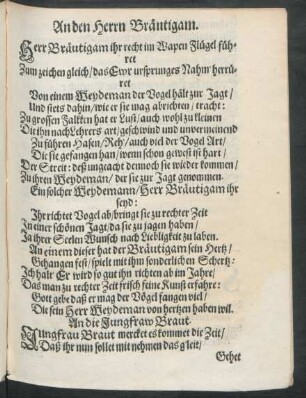 An den Herrn Bräutigam.
Herr Bräutigam ihr recht im Wapen Flügel füh-
ret
Zum zeichen gleich / das Ewr ursprunges Nahm herrü-
ret
Von einem Weydeman der Vogel hält zur Jagt /
Und stets dahin / wie er sie mag abrichten / tracht:
Zu grossen Falcken hat er Lust / auch wohl zu kleinen
Die ihn nach Lehrers art / geschwind und unvermeinend
Zu führen Hasen / Reh / auch viel der Vogel Art /
Die sie gefangen han / wenn schon gewest ist hart /
Der Streit: deß ungeacht dennoch sie wieder kommen /
Zu ihren Weydeman / der sie zur Jagt genommen.
Ein solcher Weydemann / Herr Bräutigam ihr
seyd:
Ihr richtet Vogel ab / bringt sie zu rechter Zeit
In einer schönen Jagt / da sie zu jagen haben /
Ja ihrer Seelen Wunsch nach Liebligkeit zu laben.
An einem dieser hat der Bräutigam sein Hertz /
Gehangen fest / spielt mit ihm sonderlichen Schertz:
Ich halt Er wird so gut ihn richten ab im Jahre /
Das man zu rechter Zeit frisch seine Kunst erfahre:
Gott gebe daß er mag der Vögel fangen viel /
Die sein Herr Weydeman von hertzen haben wil.
An die Jungfraw Braut.
Jungfrau Braut mercket es kommet die Zeit /
Daß ihr nun sollet mit nehmen das gleit /
Gehet